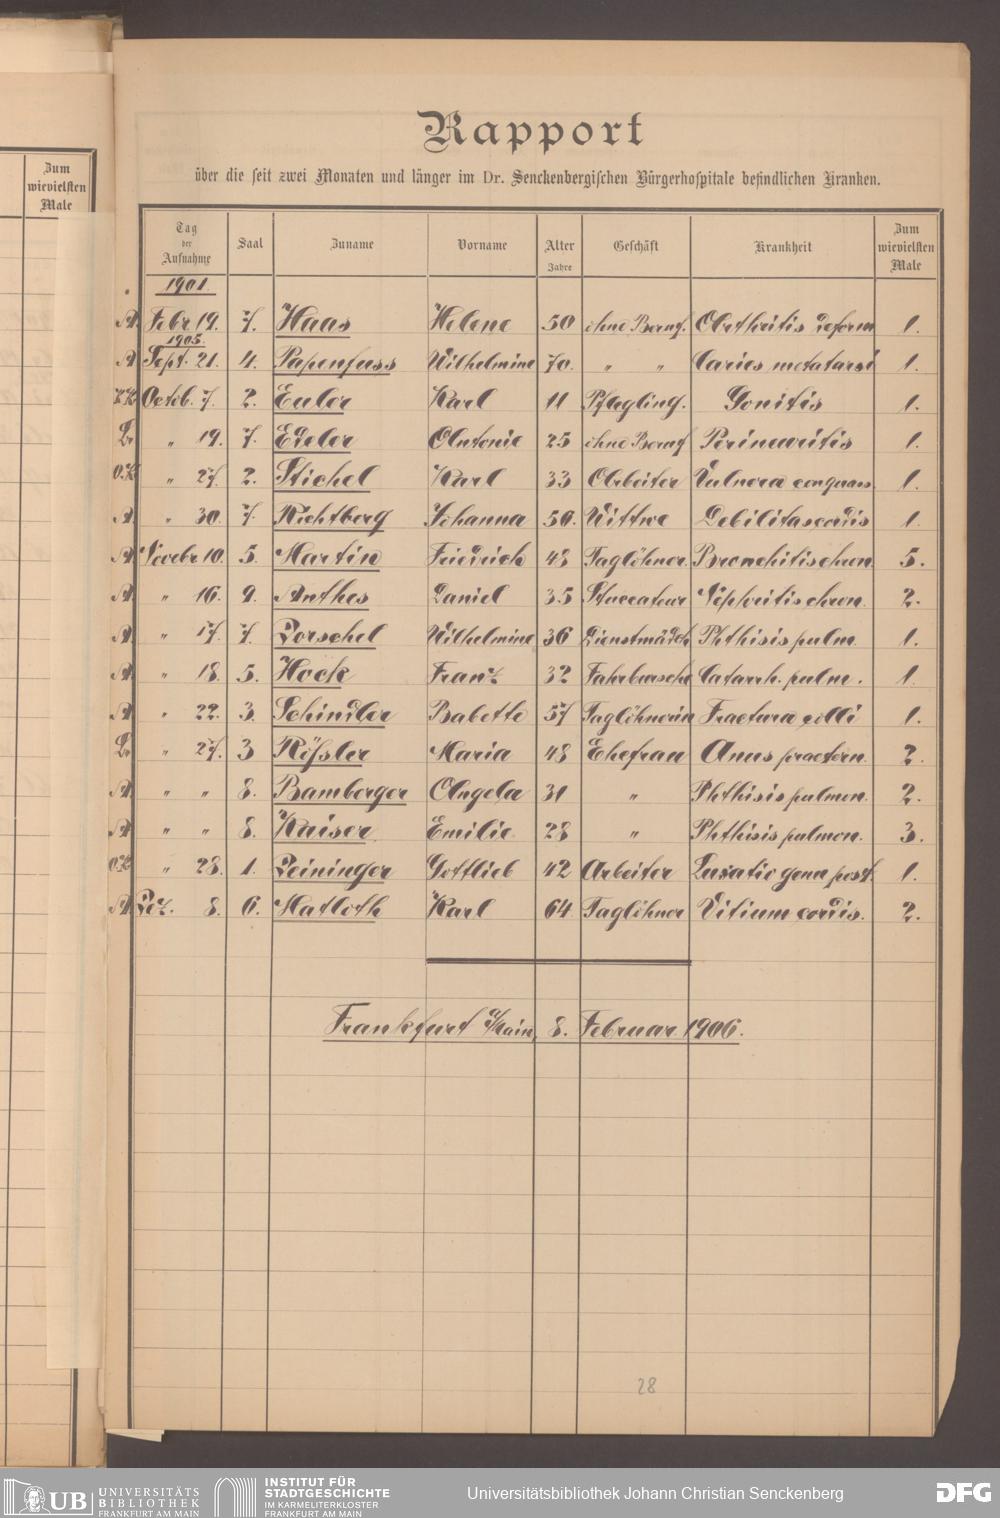 Zum
wievielsten
Male
Rapport
über die seit zwei Monaten und länger im Dr. Senckenbergischen Bürgerhospitale befindlichen Kranken.
Tag der Aufnahme Saal Zuname Vorname Alter Jahre Geschäft Krankheit Zum wievielsten Male
1901
A. Febr 19. 7. Haas Helene 50 ohne Beruf. Arthritis deform 1.
1905.
A Sept. 21. 4. Papenfuss Wilhelmine 70. " " Caries metatarsi 1.
KK Octob. 7. 2. Euler Karl 11 Pflegling. Gonitis 1.
L. " 19. 7. Edeler Antonie 25 ohne Beruf Perineuritis 1.
O.K " 27. 2. Stichel Karl 33 Arbeiter Vulnera conquass. 1.
A. " 30. 7. Richtberg Johanna 50. Wittwe Debilitas cordis 1.
A. Novebr 10. 5. Martin Friedrich 48 Taglöhner Bronchitis chron. 5.
A. " 16. 9. Anthes Daniel 35 Stuccateur Nephritis chron. 2.
A. " 17. 7. Lorschel Wilhelmine 36 Dienstmädch Phthisis pulm. 1.
A. " 18. 5. Hock Franz 32 Fahrbursche Catarrh. pulm. 1.
A " 22. 3. Schindler Babette 57 Taglöhnerin Fractura colli 1.
L. " 27. 3 Rößler Maria 48 Ehefrau Anus praetern. 2.
A. " " 8. Bamberger Angela 31 " Phthisis pulmon. 2.
A " " 8. Kaiser Emilie 28 " Phthisis pulmon. 3.
O.K " 28. 1. Leininger Gottlieb 42 Arbeiter Luxatio genu post. 1.
A. Dez. 8. 6. Matloth Karl 64 Taglöhner Vitium cordis. 2.
Frankfurt a/Main, 8. Februar 1906.
28
UB UNIVERSITÄTS
BIBLIOTHEK
FRANKFURT AM MAIN
INSTITUT FÜR
STADTGESCHICHTE
IM KARMELITERKLOSTER
FRANKFURT AM MAIN
Universitätsbibliothek Johann Christian Senckenberg
DFG